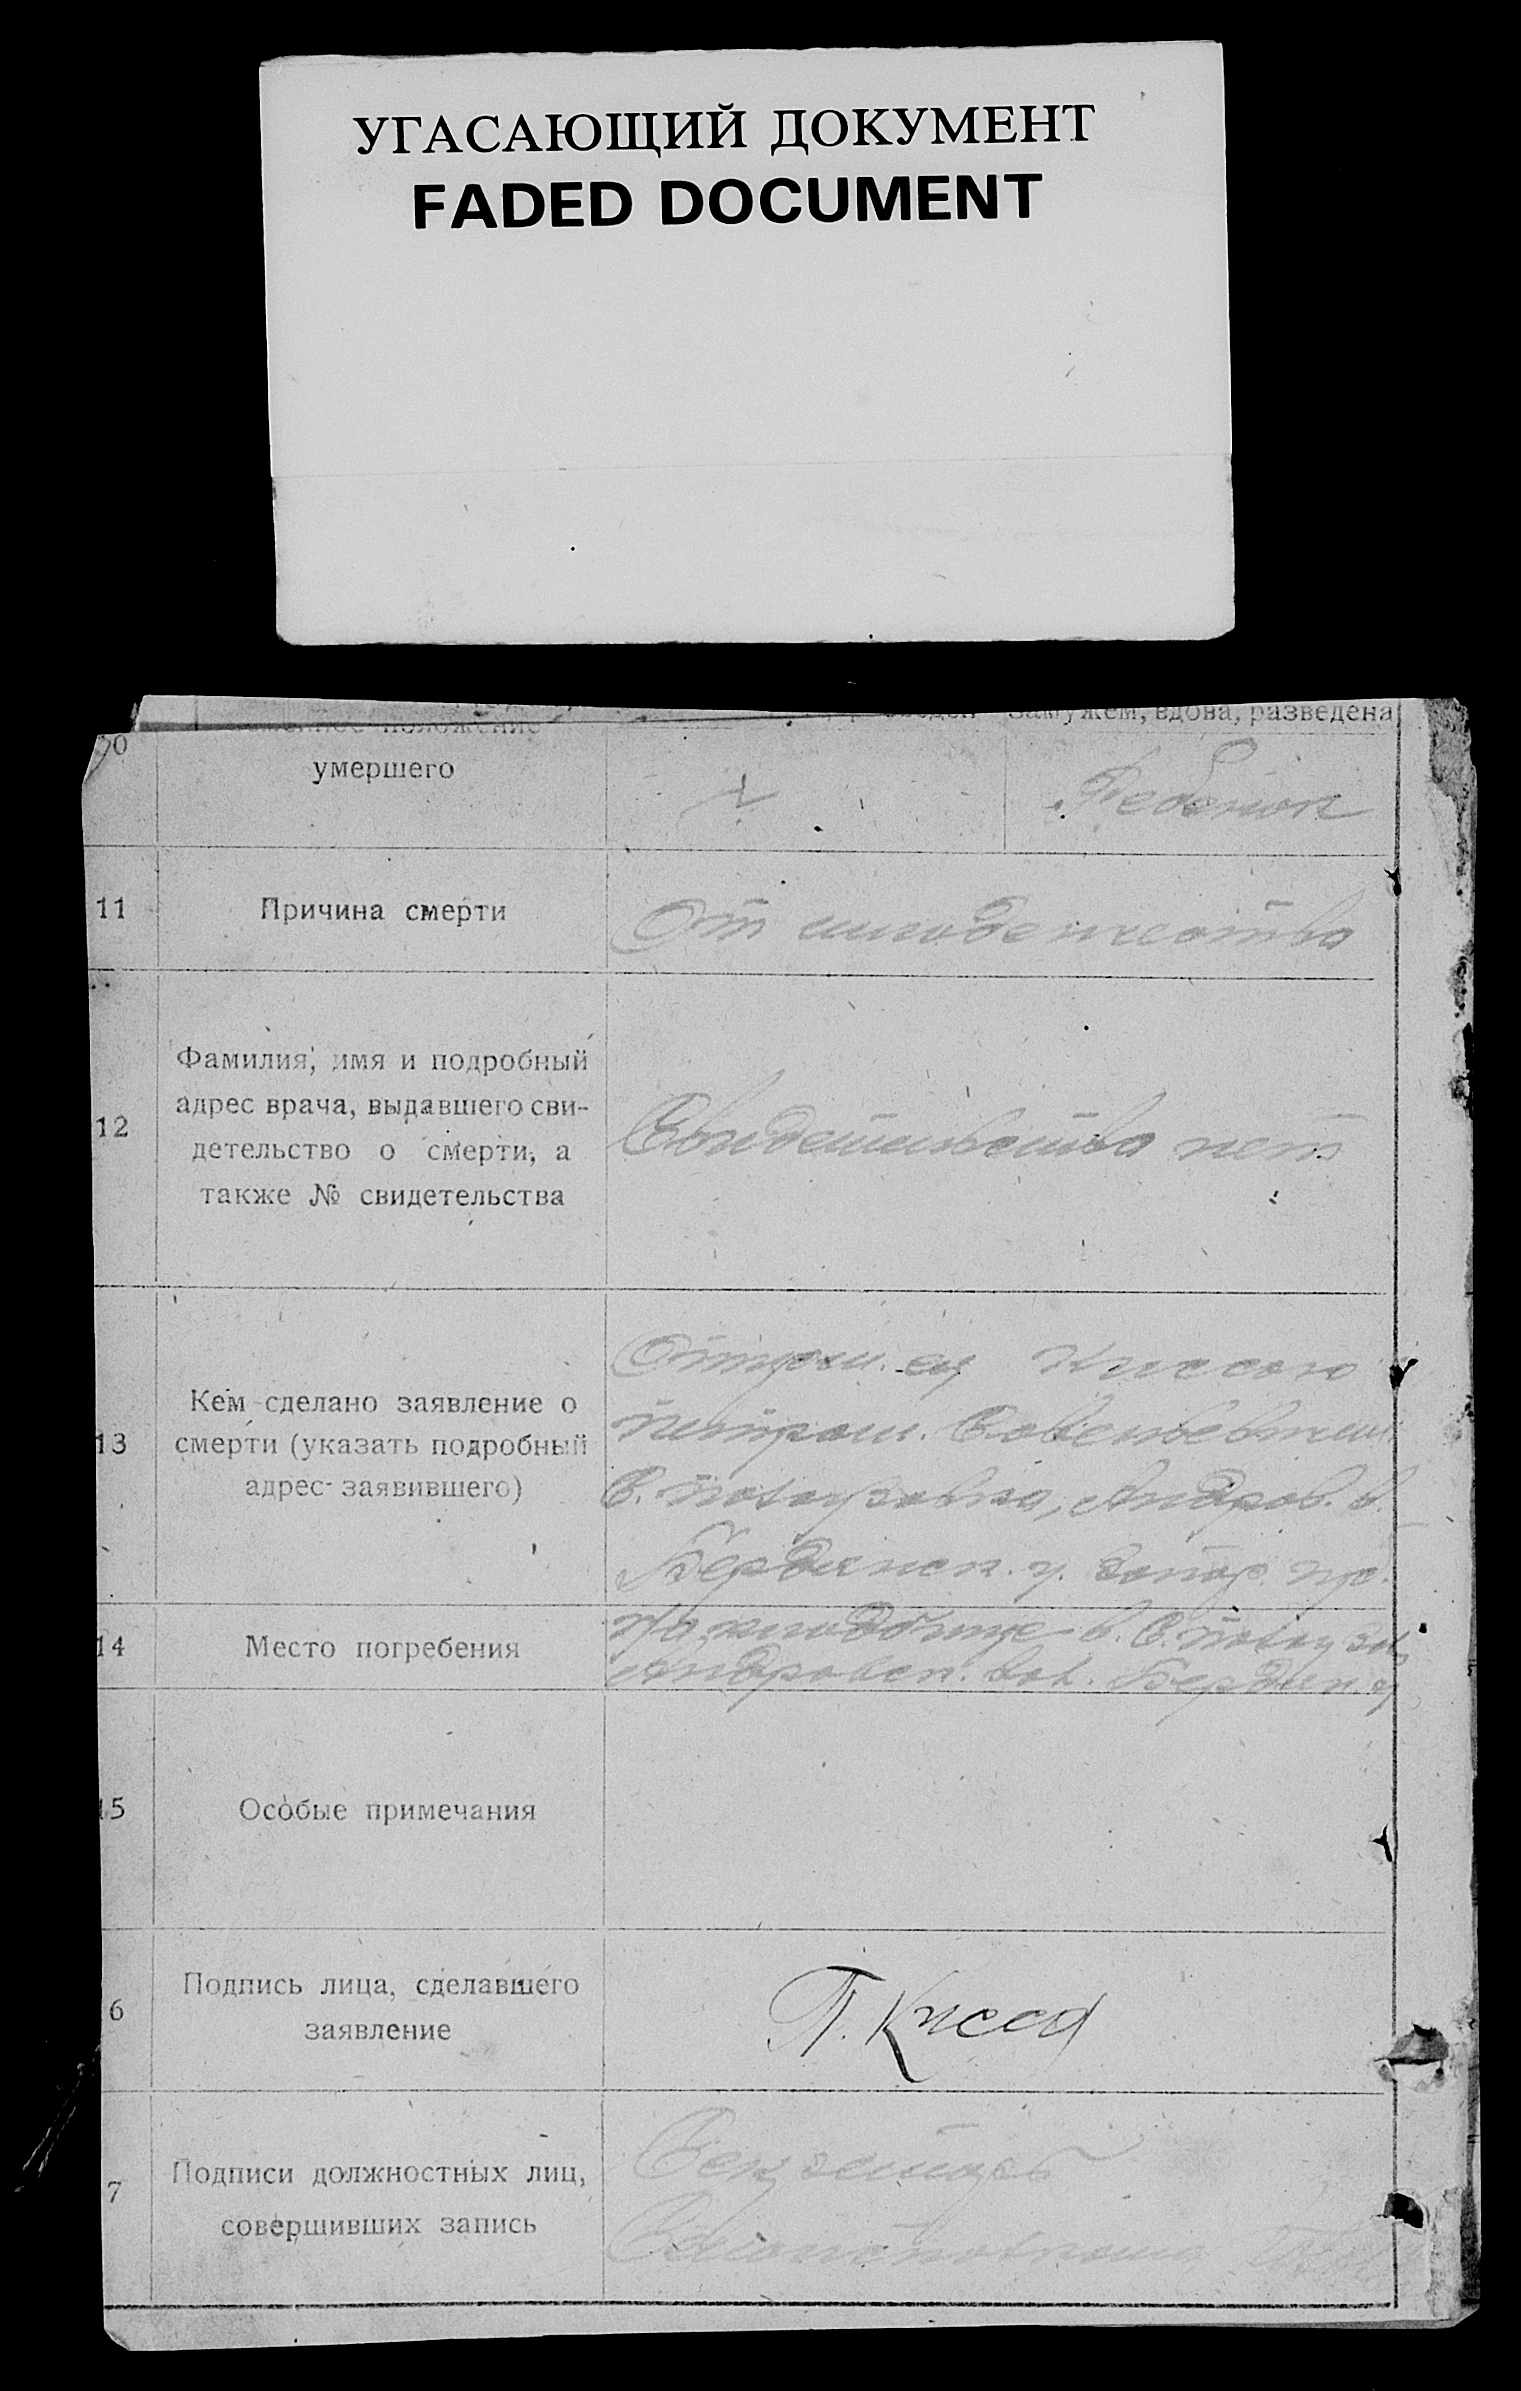 УГАСАЮЩИЙ ДОКУМЕНТ
FADED DOCUMENT
замужем, вдова, разведена
положение
умершего
Ребенок
11
Причина смерти
От младенчества
12
Фамилия, имя и подробный
адрес врача, выдавшего сви-
детельство о смерти, а
также № свидетельства
Свидетельства нет
13
Кем сделано заявление о
смерти (указать подробный
адрес заявившего)
Отцом ея Киссою
Петром
Андров. в.
Бердянск. у. Запор. гу.
14
Место погребения
На кладбище в с.
Андровск. вол. Бердян. у
15
Особые примечания
6
Подпись лица, сделавшего
заявление
П. Кисса
7
Подписи должностных лиц,
совершивших запись